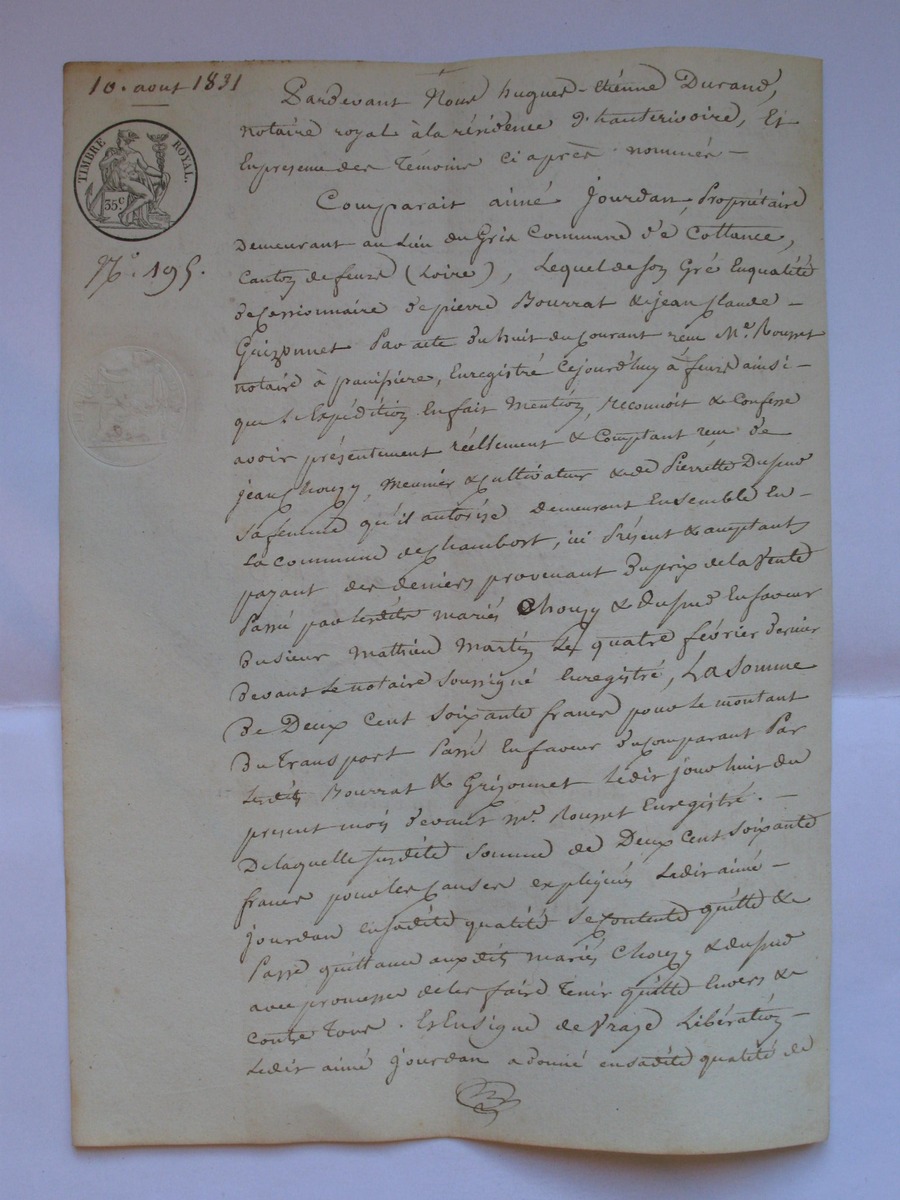 10. aout 1831
TIMBRE ROYAL.
35c
N° 195.
Pardevant Nous hugues-étienne Durand,
notaire royal à la résidence d'hauterivoire, Et
En presence des Témoins Ci après nommés -
Comparait aimé Jourdan, Propriétaire
Demeurant au Lieu du Gris Commune de Cottance,
Canton de feurs (Loire), Lequel de son Gré En qualité
de Cessionnaire de pierre Bourrat & jean Claude -
Grizonnet Par acte du huit du Courant reçu Me. Rousset
notaire à panissiere, Enregistré Cejourd'huy à feurs ainsi -
que l'Expédition En fait Mention, reconnoit & Confesse
avoir présentement réellement & Comptant reçu de
jean Chouzy, Meunier & Cultivateur & de Pierrette Dupuis
sa femme qu'il autorise Demeurant Ensemble En
la Commune de Chambost, ici Présent & acceptants
payant des deniers provenant du prix de la Vente
Passé par lesdits mariés Chouzy & dupuis En faveur
du sieur Mathieu Martin Le quatre février dernier
devant Le notaire soussigné Enregistré, La somme
De Deux Cent soixante francs pour le montant
Du Transport Passé En faveur du Comparant Par
lesdits Bourrat & Grizonnet ledit jour huit du
present mois devant Me. Rousset Enregistré. -
De laquelle susdite somme de Deux Cent soixante
francs pour les Causes expliquées Ledit aimé -
Jourdan en sadite qualité se Contente quitte &
Passe quittance auxdits mariés Chouzy & dupuis
avec promesse de les faire Tenir quitte Envers &
contre Tous. Et En signe de Vraye Libération -
Ledit aimé Jourdan a donné en sadite qualité de